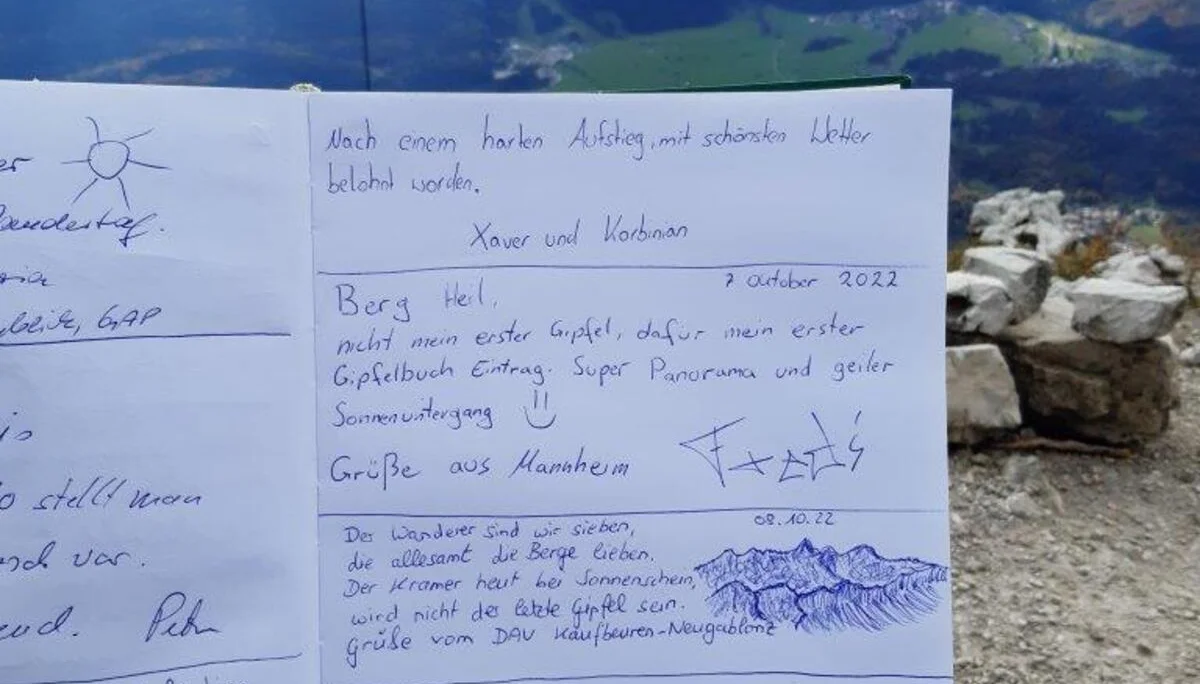 er
Wandertag.
GAP
o stellt man
var.
Petra
Nach einem harten Aufstieg, mit schönsten Wetter
belohnt worden.
Xaver und Korbinian
7 Oktober 2022
Berg Heil,
nicht mein erster Gipfel, dafür mein erster
Gipfelbuch Eintrag. Super Panorama und geiler
Sonnenuntergang
Grüße aus Mannheim
08.10.22
Der Wanderer sind wir sieben,
die allesamt die Berge lieben.
Der Kramer heut bei Sonnenschein,
wird nicht der letzte Gipfel sein.
Grüße vom DAV Kaufbeuren-Neugablonz